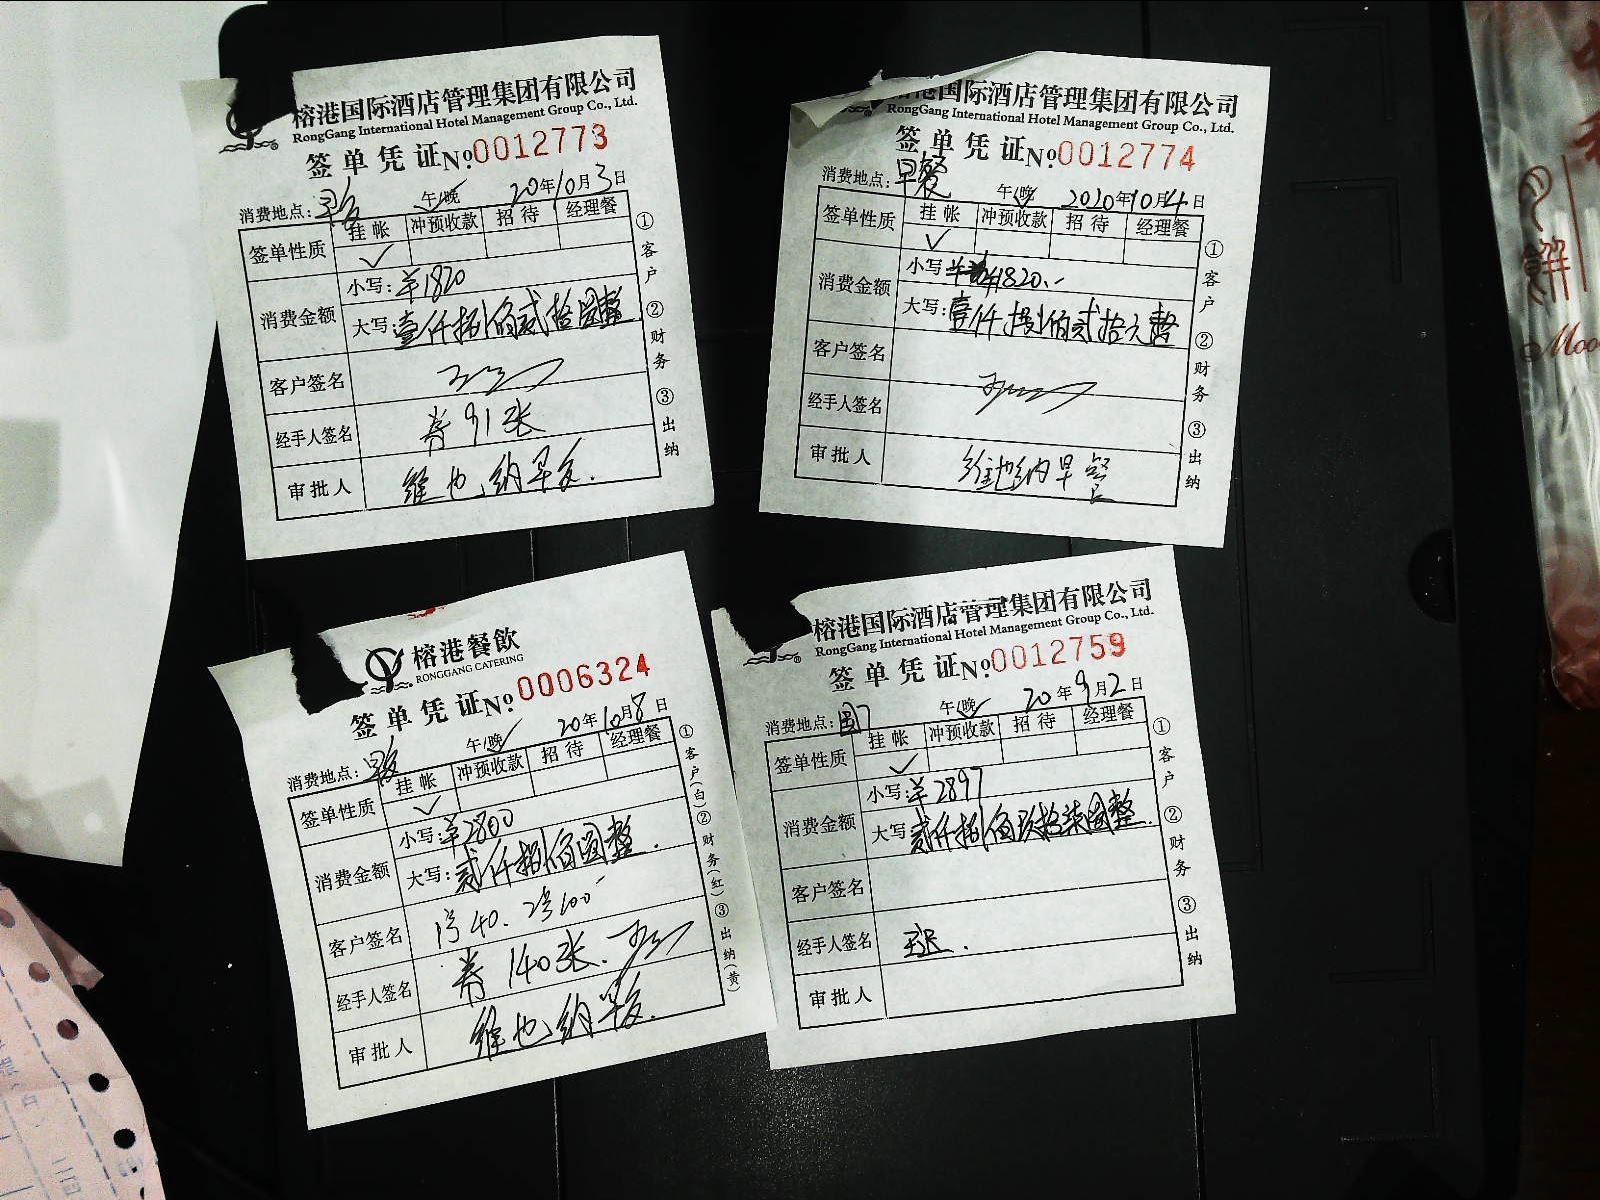 榕港国际酒店管理集团有限公司
RongGang International Hotel Management Group Co., Ltd.
签单凭证 №0012773
消费地点: 午/晚 20年10月3日
签单性质 挂帐 冲预收款 招待 经理餐
✓
消费金额 小写:¥1820
大写:壹仟捌佰贰拾圆整
客户签名
经手人签名 券91张
审批人 维也纳早餐.
①客户 ②财务 ③出纳
榕港国际酒店管理集团有限公司
RongGang International Hotel Management Group Co., Ltd.
签单凭证 №0012774
消费地点:早餐 午/晚 2020年10月4日
签单性质 挂帐 冲预收款 招待 经理餐
✓
消费金额 小写: 1820.-
大写:壹仟捌佰贰拾元整
客户签名
经手人签名
审批人 维也纳早餐
①客户 ②财务 ③出纳
榕港餐飲
RONGGANG CATERING
签单凭证 №0006324
消费地点:早餐 午/晚 20年10月8日
签单性质 挂帐 冲预收款 招待 经理餐
✓
消费金额 小写:¥2800
大写:贰仟捌佰圆整.
客户签名 1号40. 2号100
经手人签名 券140张.
审批人 维也纳早餐.
①客户(白) ②财务(红) ③出纳(黄)
榕港国际酒店管理集团有限公司
RongGang International Hotel Management Group Co., Ltd.
签单凭证 №0012759
消费地点: 午/晚 20年9月2日
签单性质 挂帐 冲预收款 招待 经理餐
✓
消费金额 小写:¥2897
大写:贰仟捌佰玖拾柒圆整.
客户签名
经手人签名
审批人
①客户 ②财务 ③出纳